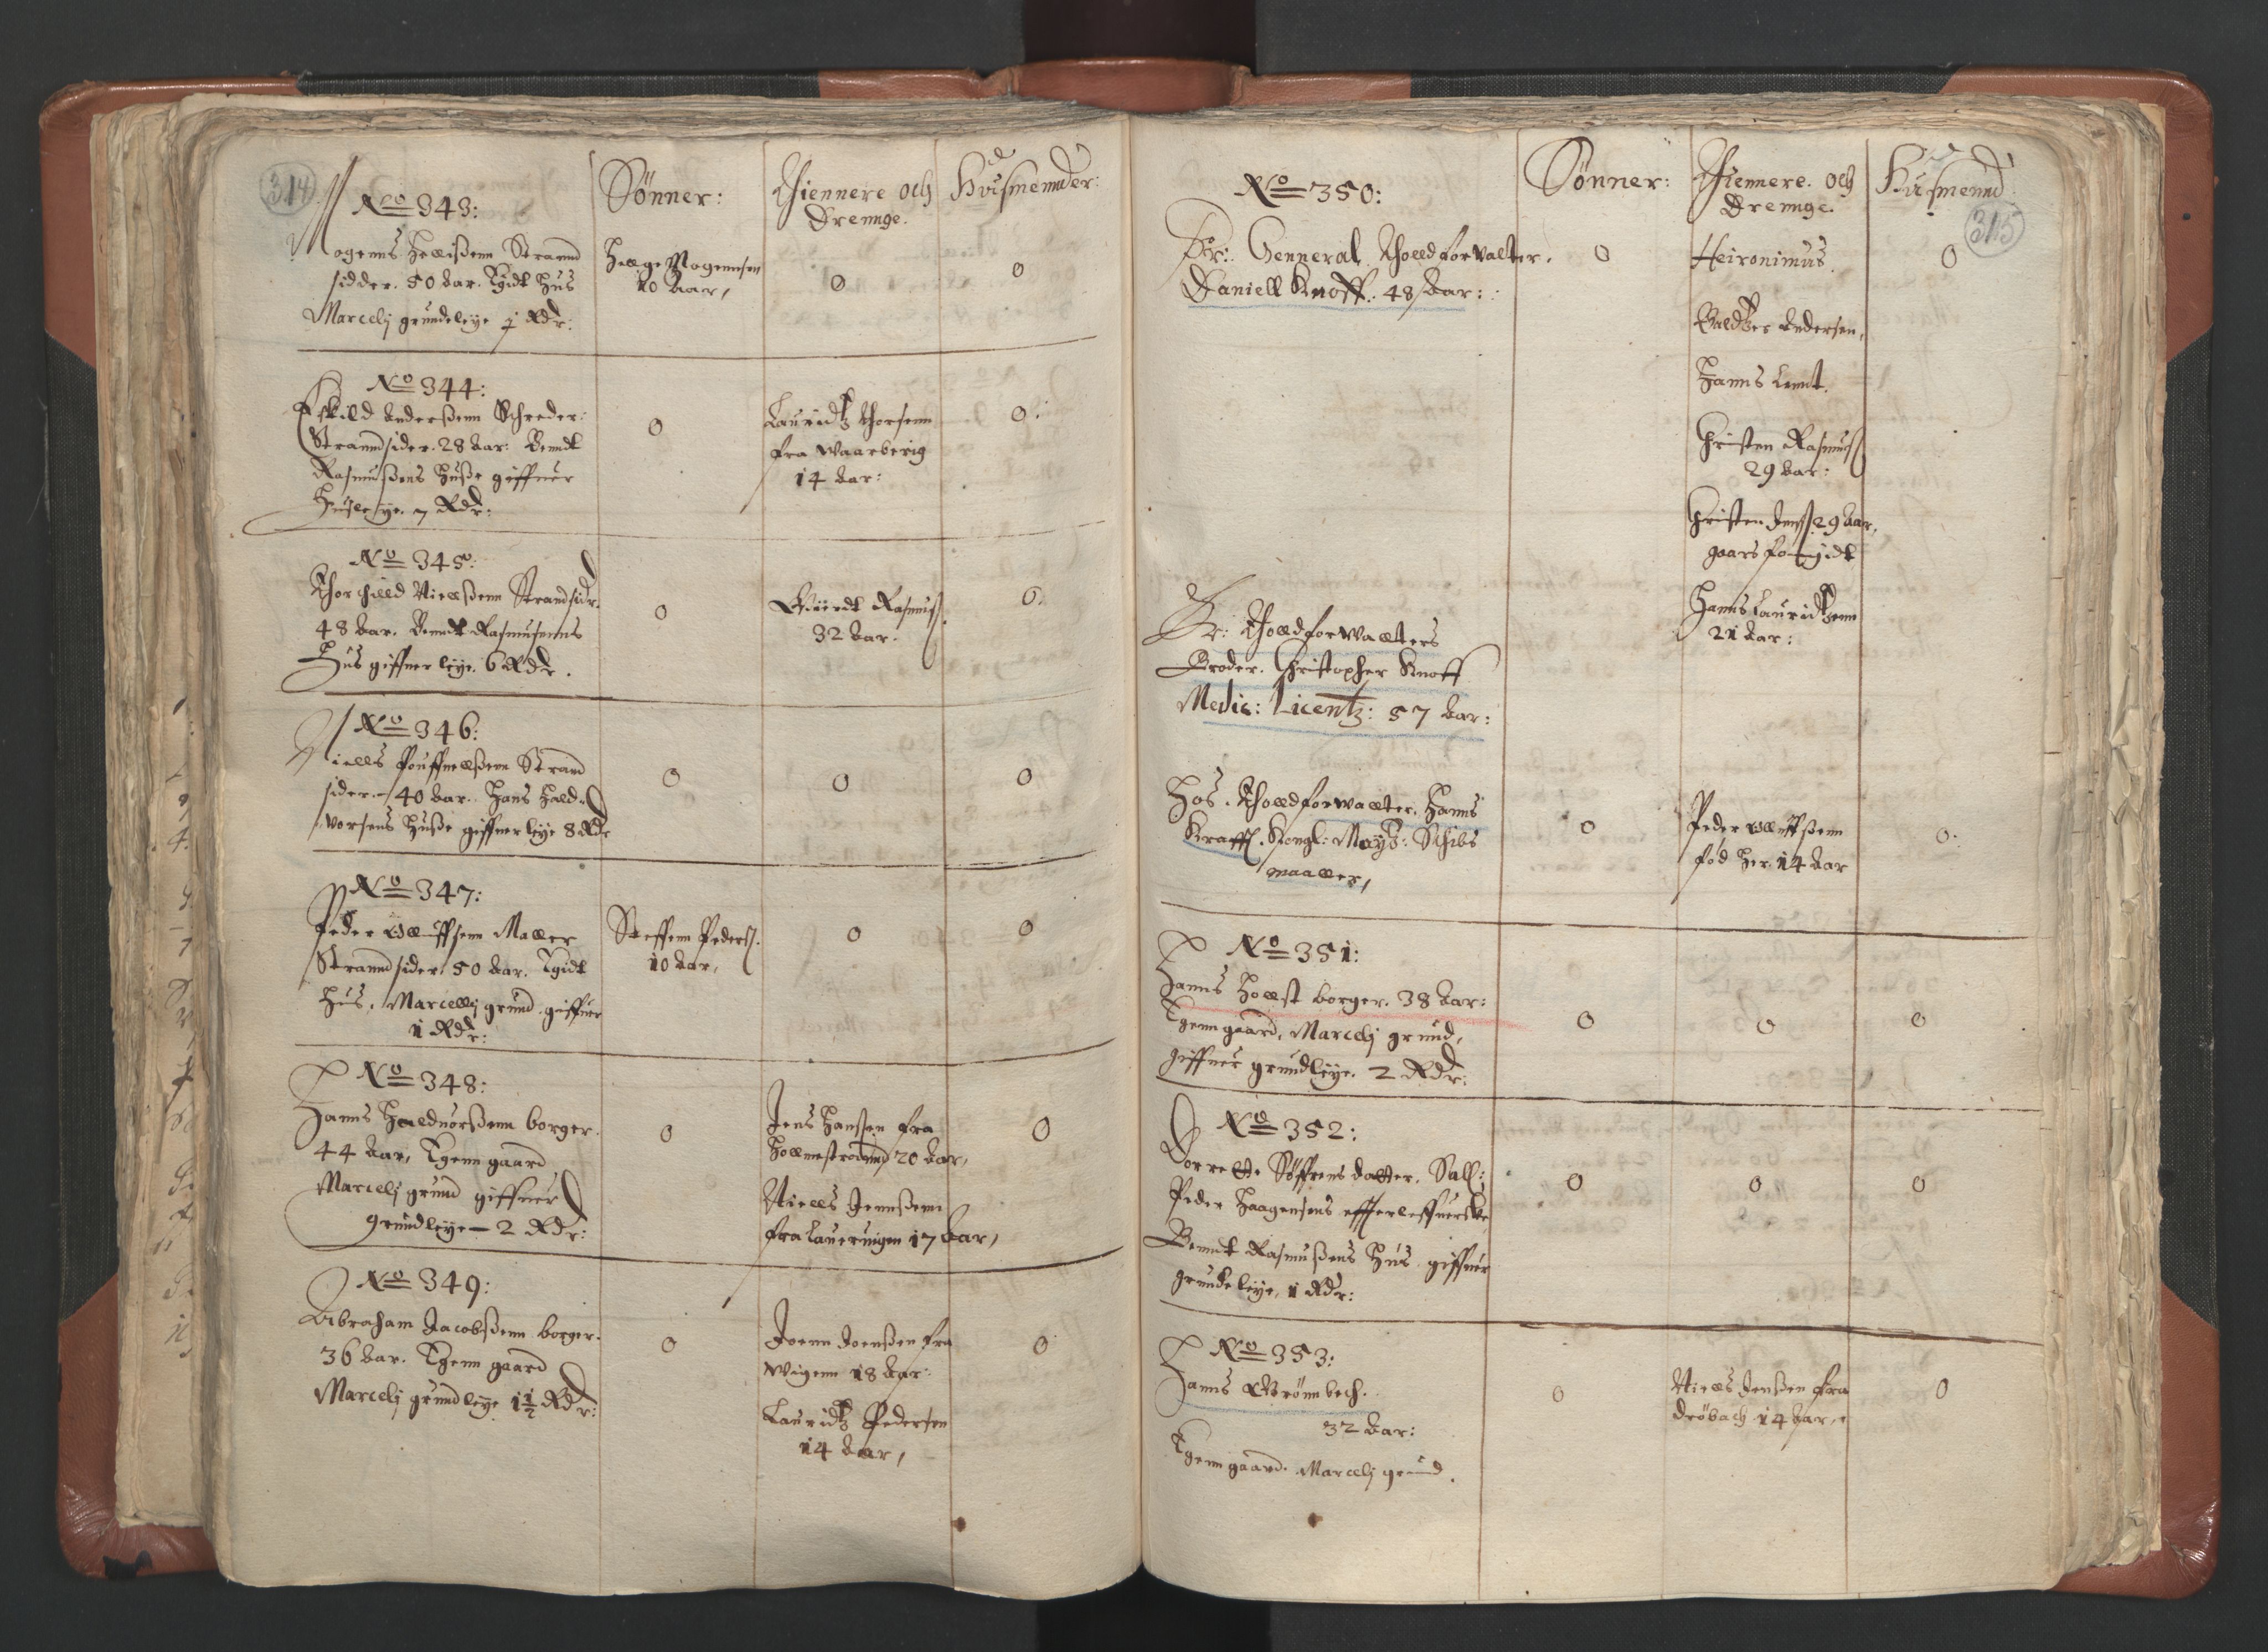 314
No 343:
Sønner:
Thiennere och
Drennge.
Husmennder:
Mogenns Hellißenn Strannd
sidder. 50 Aar. Egidt Hus
Marcelj grundeleye 1 Rdr:
Hellge Mogennsen
10 Aar,
0
0
No 344:
Eskild Anderßenn Schreder:
Stranndsider. 28 Aar: Benndt
Rasmußens Huße giffuer
Husleye. 7 Rdr:
0
Lauridtz Thorsenn
fra Waarberig
14 Aar:
0.
No 345:
Thorchilld Nielßenn Strandsidr.
48 Aar. Benndt Rasmusenns
Hus giffuer leye. 6 Rdr.
0
Rasmuß.
32 Aar.
0.
No 346:
Niells Strand
sider. 40 Aar. Hans Hald-
vorsens Huße giffuer leye 8 Rdr
0
0
0
No 347:
Peder Maller
Stranndsider. 50 Aar. Egidt
Hus. Marcellij grund giffuer
1 Rdr:
Steffenn Peders.
10 Aar.
0
0
No 348:
Hanns Halduorßenn borger.
44 Aar, Egenn gaard
Marcelj grund giffuer
grundleye - 2 Rdr:
0
Jens Hanssen fra
Hollmestrannd 20 Aar,
Niells Jennßenn
fra Lauruigen 17 Aar,
0
No 349:
Abraham Jacobßenn borger.
36 Aar. Egenn gaard
Marcelj grundleye 1½ Rdr:
0
Joenn Joenßen fra
Wigenn 18 Aar:
Lauridtz Pedersen
14 Aar,
0
315
No 350:
Sønner:
Thiennere. Och
Drennge.
Husmennd
Hr: Genneral Tholldforvalter.
Daniell Knoff. 48 Aar:
0
Heironimus.
Baldtzer Andersen,
Hanns Lennt.
Christen Rasmuß
29 Aar:
Christen Jenß. 29 Aar.
gaars fougidt
Hanns Lauridtzenn
21 Aar:
0
Hr: Tholldforwallters
Broder. Christopher Knoff
Medic: Licentz: 57 Aar:
Hos. Tholldforwallter. Hanns
Krafft. Kongl: Mayts: Schibs
maaller,
0
Peder
fød her. 14 Aar
0.
No 351:
Hanns Hollst borger. 38 Aar:
Egenn gaard. Marcelj grund,
giffuer grundleye. 2 Rdr:
0
0
0
No 352:
Dorrette Søffrens datter. Sall:
Peder Haagensens effterleffuerske
Benndt Rasmußens Hus giffuer
grundeleye, 1 Rdr:
0
0
0
No 353:
Hanns Grønnbech.
32 Aar:
Egenn gaard. Marcelj grund.
0
Niells Jenßen fra
Drøbach 14 Aar,
0